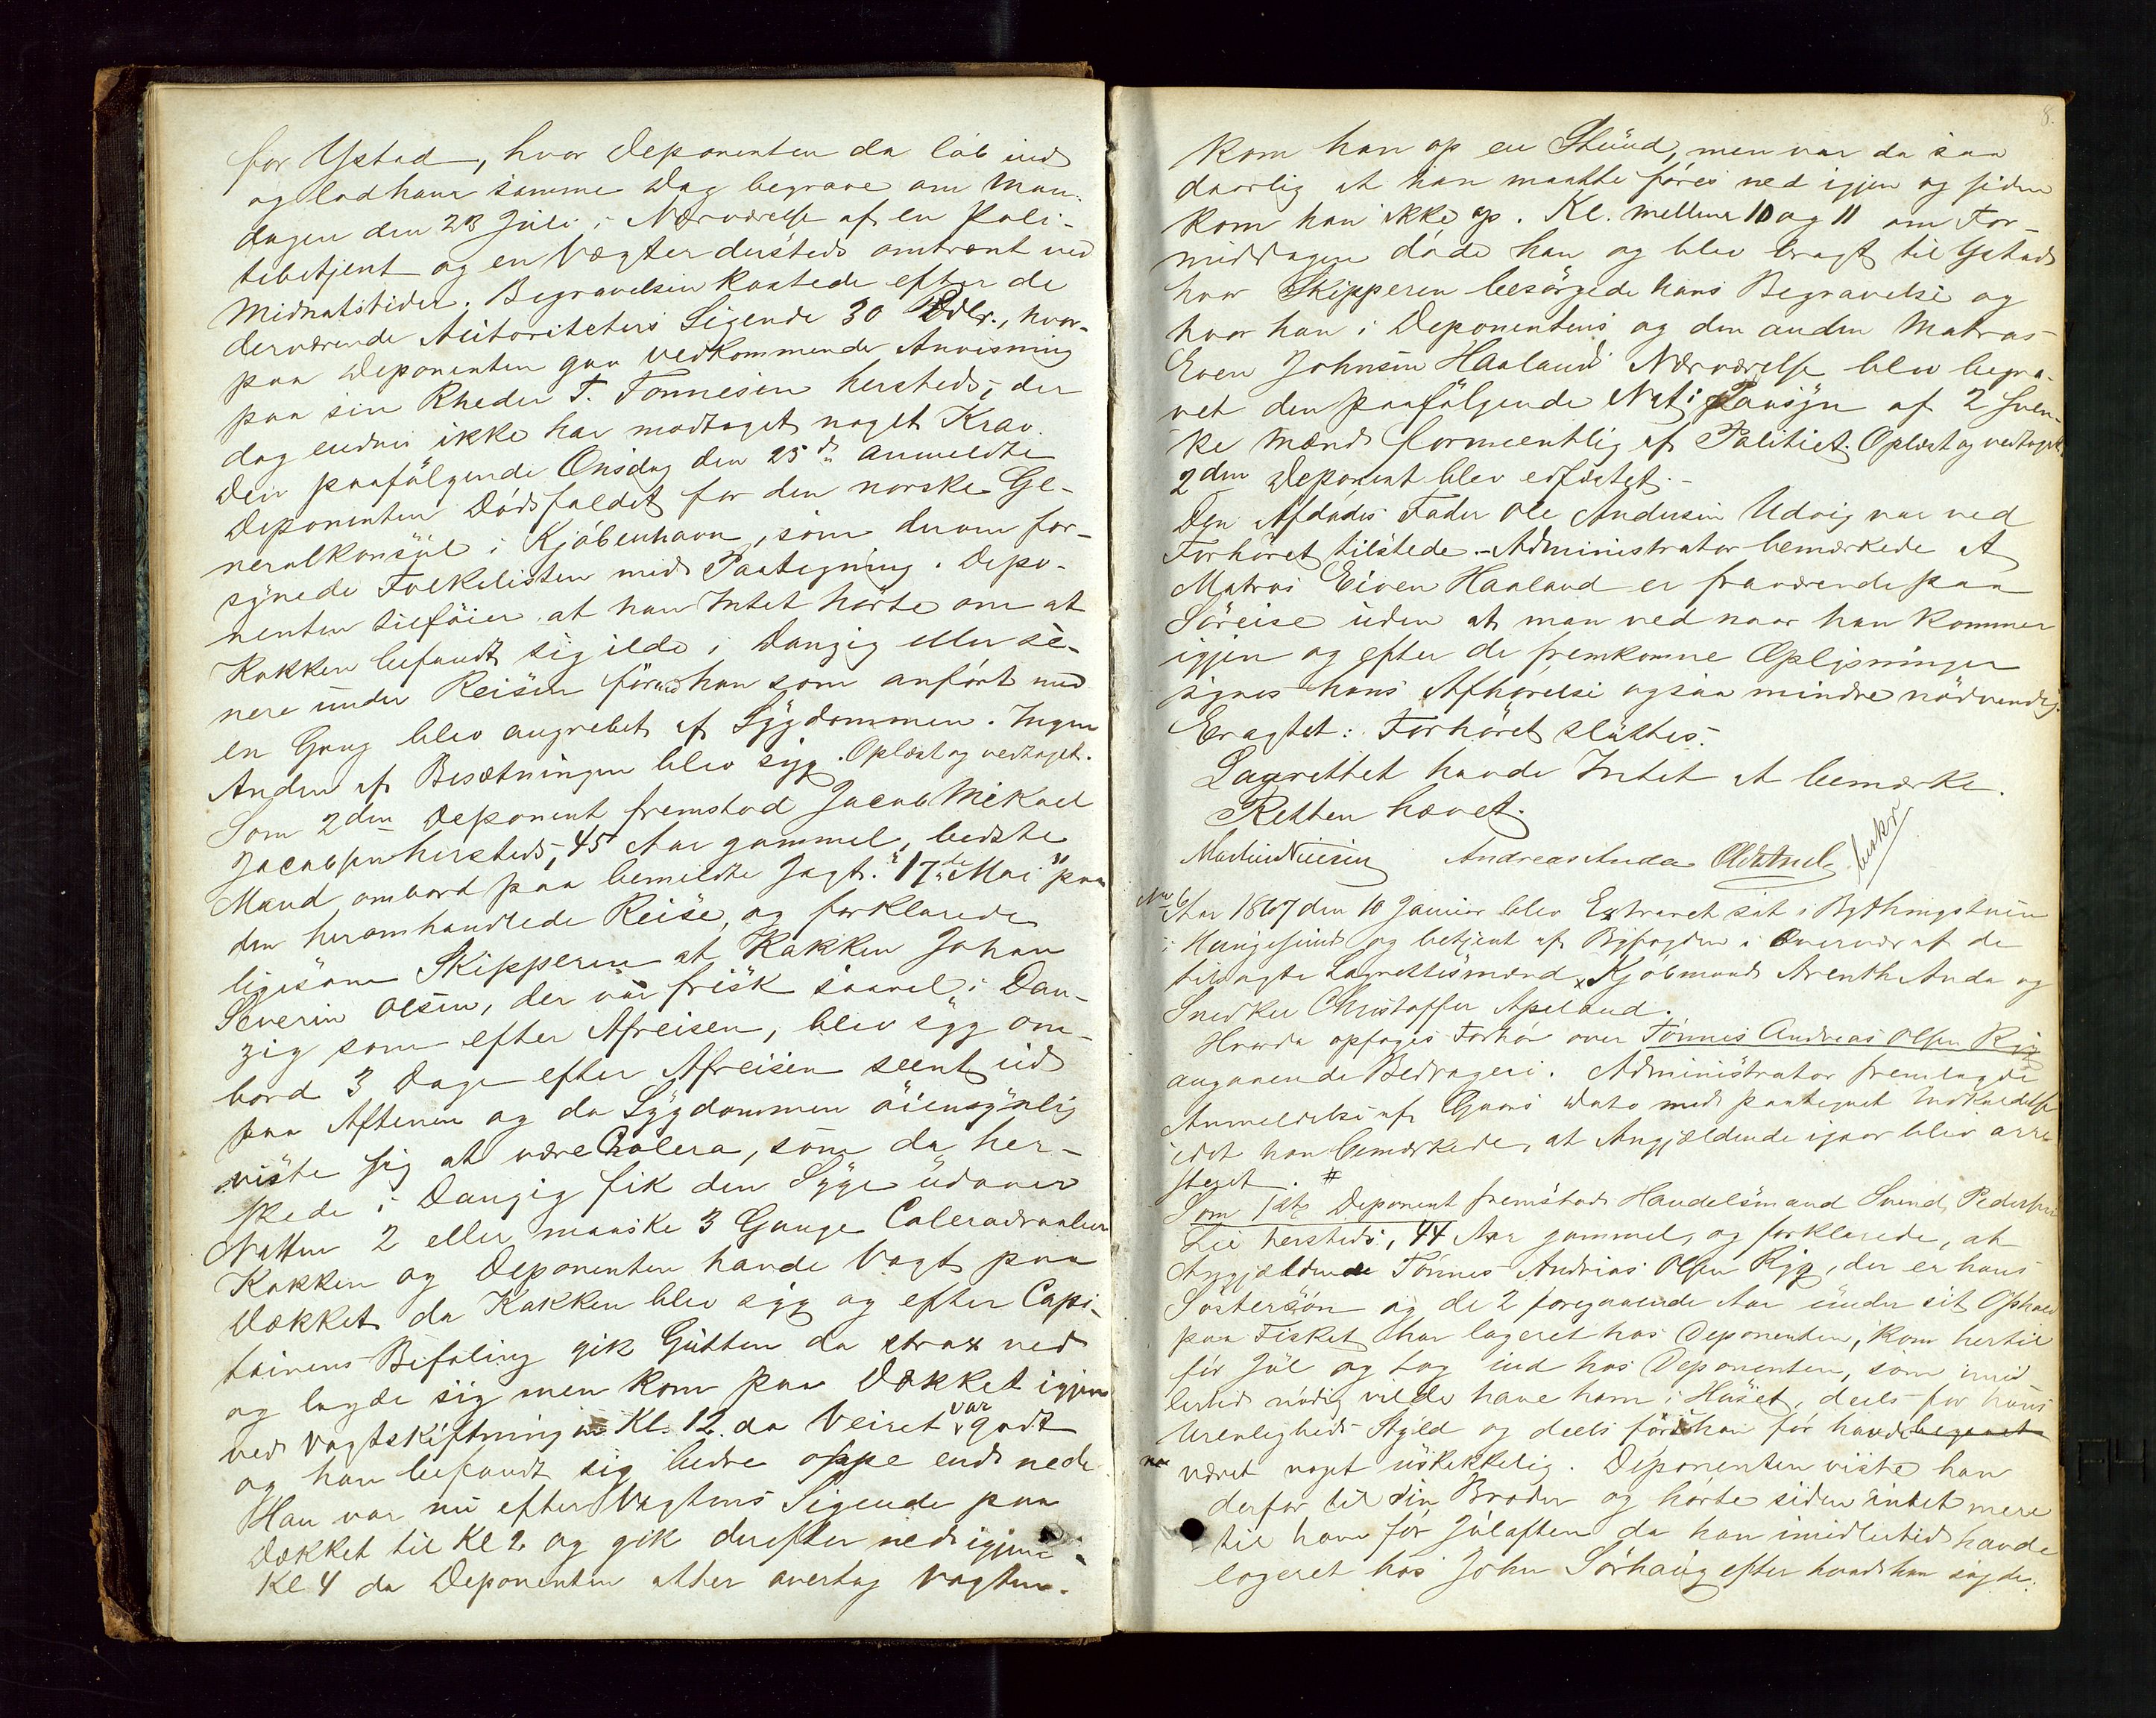 for Ystad, hvor Deponenten da löb ind
og lod ham samme Dag begrave om Man-
dagen den 23 Juli i Nærværelse af en Poli-
tibetjent og en Vægter dersteds omtrent ved
Midnatstider. Begravelsen kostede efter de
derværende Autoriteters Sigende 30 Rdlr., hvor-
paa Deponenten gav Vedkommende Anvisning
paa sin Rheder T. Tonnesen hersteds, der
dog endnu ikke har modtaget noget Krav.
Den paafölgende Onsdag den 25de anmeldte
Deponenten Dödsfaldet for den norske Ge-
neralkonsul i Kjöbenhavn, som derom for-
synede Folkelisten med Paategning. Depo-
nenten tilföier at han Intet hörte om at
Kokken befandt sig ilde i Danzig eller se-
nere under Reisen förend han som anfört med
en Gang blev angrebet af Sygdommen. Ingen
Anden af Besætningen blev syg. Oplæst og vedtaget.
Som 2den Deponent fremstod Jacob Mikael
Jacobsen hersteds, 45 Aar gammel, bedste
Mand ombord paa bemeldte Jagt "17de Mai" paa
den heromhandlede Reise, og forklarede
ligesom Skipperen at Kokken Johan
Severin Olsen, der var frisk saavel i Dan-
zig som efter Afreisen, blev syg om-
bord 3 Dage efter Afreisen seent ud
paa Aftenen og da Sygdommen öiensynlig
viste sig at være Colera, som da her-
skede i Danzig fik den Syge udover
Natten 2 eller maaske 3 Gange Coleradraaber
Kokken og Deponenten havde Vagt paa
Dækket da Kokken blev syg og efter Capi-
tainens Befaling gik Gutten da strax ned
og lagde sig men kom paa Dækket igjen
ved Vagtskiftning Kl. 12. da Veiret var godt
og han befandt sig bedre oppe end nede
Han var nu efter Vagtens Sigende paa
Dækket til Kl 2 og gik derefter ned igjen
Kl 4 da Deponenten atter overtog Vagten.
8.
kom han op en Stund, men var da saa
daarlig at han maatte föres ned igjen og siden
kom han ikke op. Kl. mellem 10 og 11 om For-
middagen döde han og blev bragt til Ystad
hvor Skipperen besörgede hans Begravelse og
hvor han i Deponentens og den anden Matros
Even Johnsen Haalands Nærværelse blev begra-
vet den paafölgende Nat i Paasyn af 2 sven-
ke Mænd formeentlig af Politiet. Oplæst og vedtaget.
2den Deponent blev edfæstet.-
Den Afdödes Fader Ole Andersen Udvig var ved
Forhöret tilstede.- Administrator bemærkede at
Matros Eiven Haaland er fraværende paa
Söreise uden at man ved naar han kommer
igjen og efter de fremkomne Oplysninger
synes hans Afhörelse ogsaa mindre nödvendig.
Eragtet: Forhöret sluttes.
Lagrettet havde Intet at bemærke.
Retten hævet.
Andreas Anda
No 6
Aar 1867 den 10 Januar blev Extraret sat i Bythingstuen
i Haugesund og betjent af Byfogden i Overvær af de
tiltagte Lagrettesmænd, Kjöbmand Arenth Anda og
Snedker Christoffer Apeland.
Hvorda optoges Forhör over Tönnes Andreas Olsen Ryg
angaaende Bedrageri. Administrator fremlagde
Anmeldelse af Gaars Dato med paategnet Indkaldelse
idet han bemærkede, at Angjældende igaar blev arre-
steret. #
Som 1ste Deponent fremstod Handelsmand Svend Pedersen
Lie hersteds, 44 Aar gammel, og forklarede, at
Angjældende Tönnes Andreas Olsen Ryg, der er hans
Söstersön og de 2 foregaaende Aar under sit Ophold
paa Fisket har logeret hos Deponenten, kom hertil
för Jul og tog ind hos Deponenten, som imid-
lertid nödig vilde have ham i Huset, deels for hans
Urenligheds Skyld og deels fordi han för havde begaaet
været noget uskikkelig. Deponenten viste han
derfor til sin Broder og hörte siden intet mere
til ham för Julaften da han imidlertid havde
logeret hos John Sörhaug efter hvad han sagde.